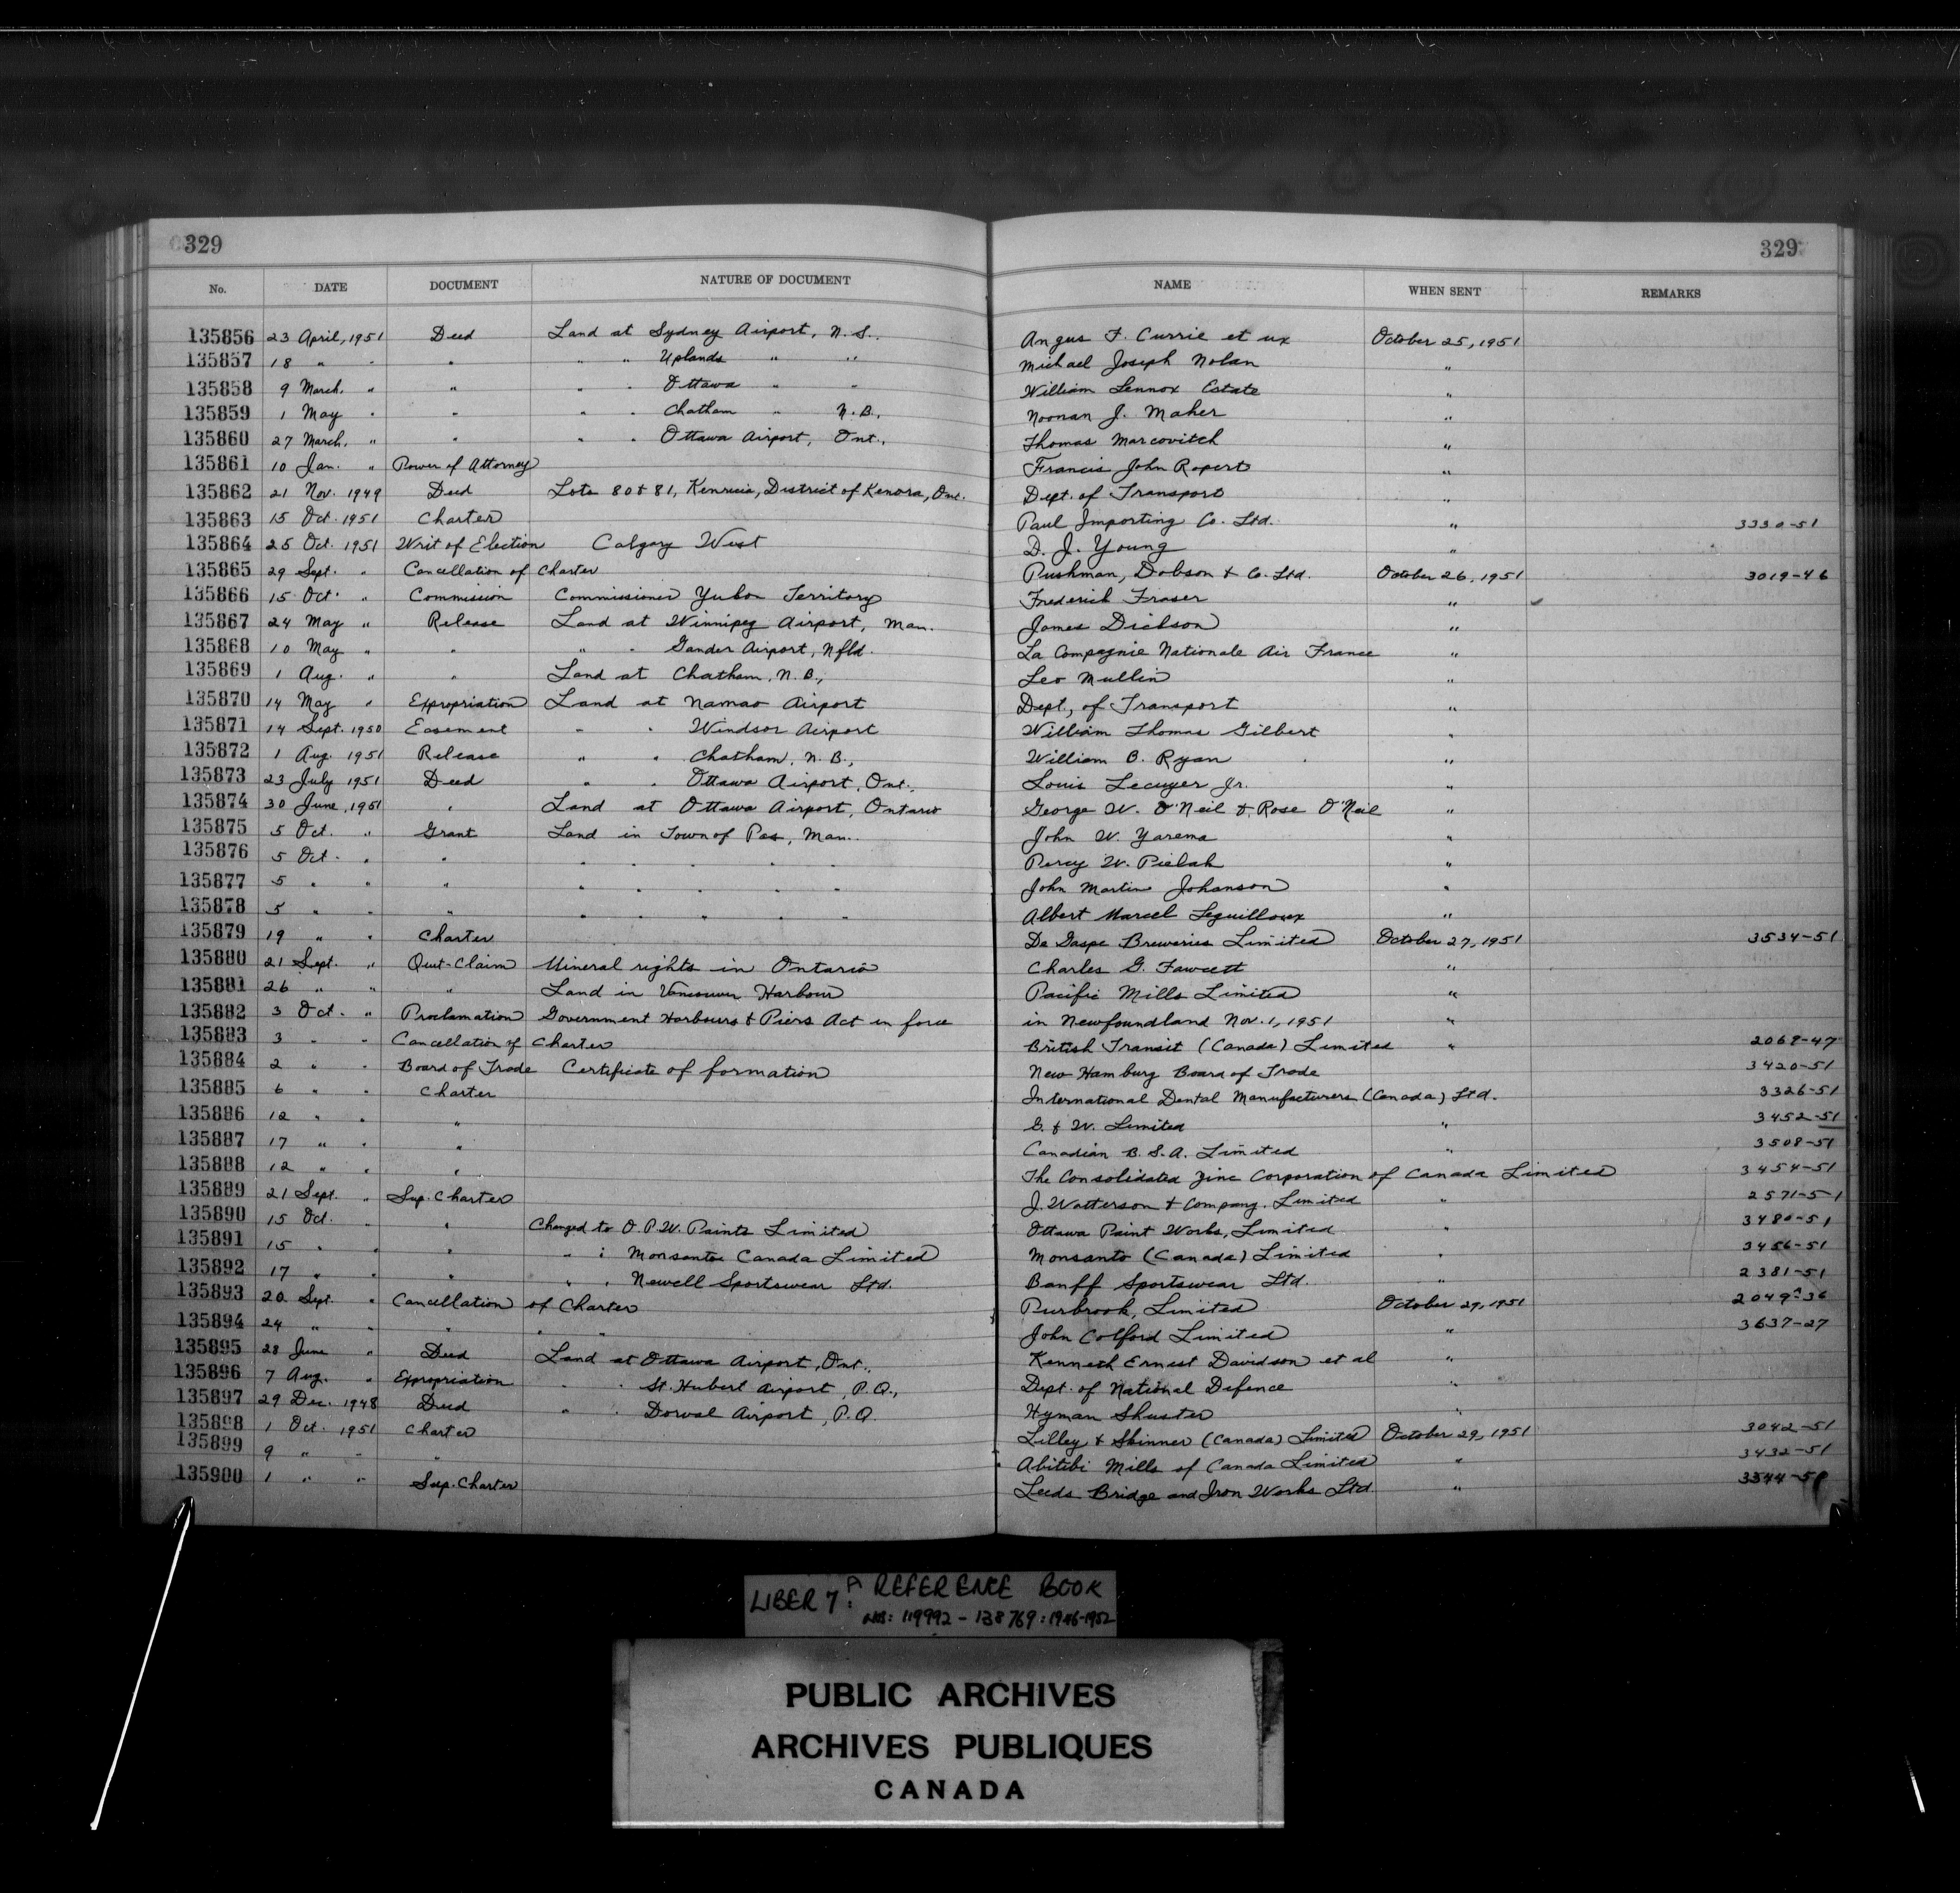 329 329
No. DATE DOCUMENT NATURE OF DOCUMENT NAME WHEN SENT REMARKS
135856 23 April, 1951 Deed Land at Sydney Airport, N.S. Angus F. Currie et ux October 25, 1951
135857 18 " " " " " Uplands " " Michael Joseph Nolan "
135858 9 March. " " " " Ottawa " " William Lennox Estate "
135859 1 May " " " " Chatham " N.B., Noonan J. Maher "
135860 27 March. " " " " Ottawa Airport, Ont., Thomas Marcovitch "
135861 10 Jan. " Power of Attorney Francis John Ropert "
135862 21 Nov. 1949 Deed Lots 80 & 81, Kenricia, District of Kenora, Ont. Dept. of Transport "
135863 15 Oct. 1951 Charter Paul Importing Co. Ltd. " 3330-51
135864 25 Oct. 1951 Writ of Election Calgary West D. J. Young "
135865 29 Sept. " Cancellation of Charter Pushman, Dobson & Co. Ltd. October 26, 1951 3019-46
135866 15 Oct. " Commission Commissioner Yukon Territory Frederick Fraser "
135867 24 May " Release Land at Winnipeg Airport, Man. James Dickson "
135868 10 May " " " " Gander Airport, Nfld. La Compagnie Nationale Air France "
135869 1 Aug. " " Land at Chatham, N.B., Leo Mullin "
135870 14 May " Expropriation Land at Namao Airport Dept., of Transport "
135871 14 Sept. 1950 Easement " " Windsor Airport William Thomas Gilbert "
135872 1 Aug. 1951 Release " " Chatham, N.B., William B. Ryan "
135873 23 July 1951 Deed " " Ottawa Airport, Ont., Louis Lecuyer Jr. "
135874 30 June, 1951 " Land at Ottawa Airport, Ontario George W. O'Neil & Rose O'Neil "
135875 5 Oct. " Grant Land in Town of Pas, Man. John W. Yarema "
135876 5 Oct. " " " " " " " Percy W. Pielak "
135877 5 " " " " " " " " John Martin Johanson "
135878 5 " " " " " " " " Albert Marcel Leguilloux "
135879 19 " " Charter De Gaspe Breweries Limited October 27, 1951 3534-51
135880 21 Sept. " Quit-Claim Mineral rights in Ontario Charles G. Fawcett "
135881 26 " " " Land in Vancouver Harbour Pacific Mills Limited "
135882 3 Oct. " Proclamation Government Harbours & Piers Act in force in Newfoundland Nov. 1, 1951 "
135883 3 " " Cancellation of Charter British Transit (Canada) Limited " 2069-47
135884 2 " " Board of Trade Certificate of formation New Hamburg Board of Trade 3420-51
135885 6 " " Charter International Dental Manufacturers (Canada) Ltd. 3326-51
135886 12 " " " G. & W. Limited " 3452-51
135887 17 " " " Canadian B.S.A. Limited " 3508-51
135888 12 " " " The Consolidated Zinc Corporation of Canada Limited 3454-51
135889 21 Sept. " Sup. Charter J. Watterson & Company. Limited " 2571-51
135890 15 Oct. " " Changed to O.P.W. Paints Limited Ottawa Paint Works, Limited " 3480-51
135891 15 " " " " " Monsanto Canada Limited Monsanto (Canada) Limited " 3456-51
135892 17 " " " " " Newell Sportswear Ltd. Banff Sportswear Ltd. " 2381-51
135893 20 Sept. " Cancellation of Charter Purbrook, Limited October 29, 1951 2049-36
135894 24 " " " " " John Colford Limited " 3637-27
135895 28 June " Deed Land at Ottawa Airport, Ont., Kenneth Ernest Davidson et al "
135896 7 Aug. " Expropriation " " St. Hubert Airport, P.Q., Dept. of National Defence "
135897 29 Dec. 1948 Deed " " Dorval Airport, P.Q. Hyman Shuster "
135898 1 Oct. 1951 Charter Lilley & Skinner (Canada) Limited October 29, 1951 3042-51
135899 9 " " " Abitibi Mills of Canada Limited " 3432-51
135900 1 " " Sup. Charter Leeds Bridge and Iron Works Ltd. " 3544-51
LIBER 7A: REFERENCE BOOK
NOS: 119992 - 138769: 1946-1952
PUBLIC ARCHIVES
ARCHIVES PUBLIQUES
CANADA